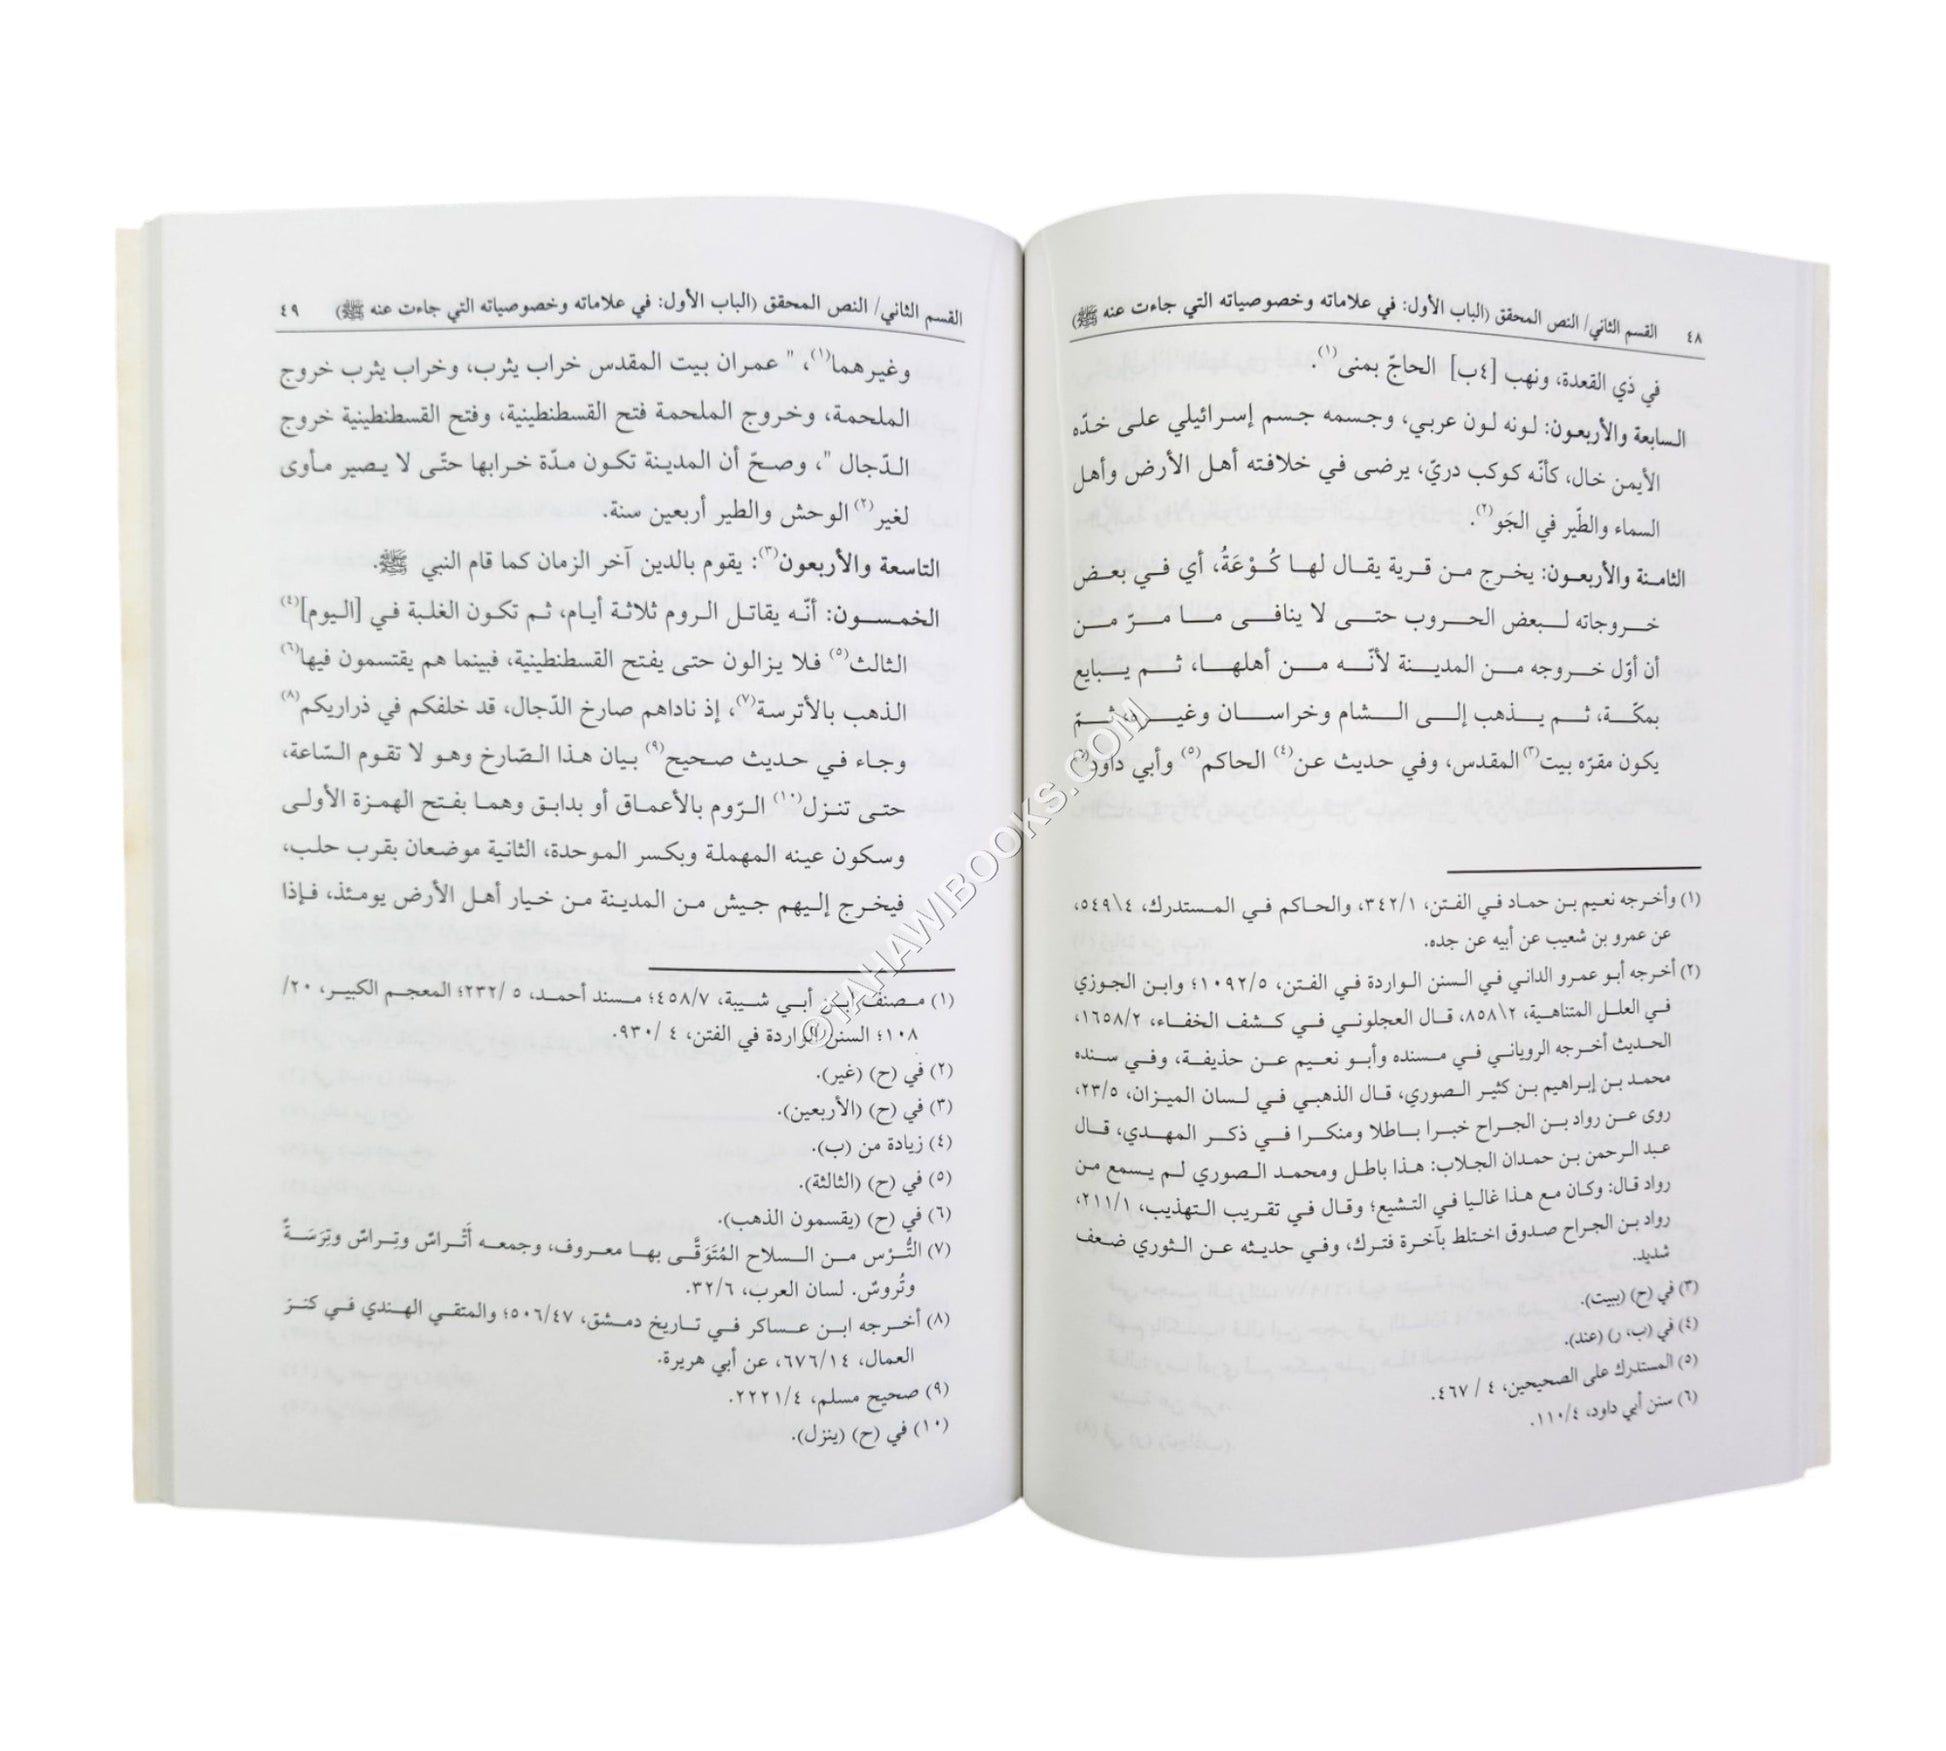 ٤٨ القسم الثاني/ النص المحقق (الباب الأول: في علاماته وخصوصياته التي جاءت عنه ﷺ)
في ذي القعدة، ونهب [٤ب] الحاجّ بمنى(١).
السابعة والأربعون: لونه لون عربي، وجسمه جسم إسرائيلي على خدّه
الأيمن خال، كأنّه كوكب دريّ، يرضى في خلافته أهل الأرض وأهل
السماء والطّير في الجَو(٢).
الثامنة والأربعون: يخرج من قرية يقال لها كُوْعَةُ، أي في بعض
خروجاته لبعض الحروب حتى لا ينافى ما مرّ من
أن أوّل خروجه من المدينة لأنّه من أهلها، ثم يبايع
بمكّة، ثم يذهب إلى الشام وخراسان وغيره، ثمّ
يكون مقرّه بيت(٣) المقدس، وفي حديث عن(٤) الحاكم(٥) وأبي داود(٦)
(١) وأخرجه نعيم بن حماد في الفتن، ٣٤٢/١، والحاكم في المستدرك، ٤\٥٤٩،
عن عمرو بن شعيب عن أبيه عن جده.
(٢) أخرجه أبو عمرو الداني في السنن الواردة في الفتن، ١٠٩٢/٥؛ وابن الجوزي
في العلل المتناهية، ٢\٨٥٨، قال العجلوني في كشف الخفاء، ١٦٥٨/٢،
الحديث أخرجه الروياني في مسنده وأبو نعيم عن حذيفة، وفي سنده
محمد بن إبراهيم بن كثير الصوري، قال الذهبي في لسان الميزان، ٢٣/٥،
روى عن رواد بن الجراح خبرا باطلا ومنكرا في ذكر المهدي، قال
عبد الرحمن بن حمدان الجلاب: هذا باطل ومحمد الصوري لم يسمع من
رواد قال: وكان مع هذا غاليا في التشيع؛ وقال في تقريب التهذيب، ٢١١/١،
رواد بن الجراح صدوق اختلط بآخرة فترك، وفي حديثه عن الثوري ضعف
شديد.
(٣) في (ح) (ببيت).
(٤) في (ب، ر) (عند).
(٥) المستدرك على الصحيحين، ٤ / ٤٦٧.
(٦) سنن أبي داود، ١١٠/٤.
القسم الثاني/ النص المحقق (الباب الأول: في علاماته وخصوصياته التي جاءت عنه ﷺ) ٤٩
وغيرهما(١)، " عمران بيت المقدس خراب يثرب، وخراب يثرب خروج
الملحمة، وخروج الملحمة فتح القسطنطينية، وفتح القسطنطينية خروج
الدّجال "، وصحّ أن المدينة تكون مدّة خرابها حتّى لا يصير مأوى
لغير(٢) الوحش والطير أربعين سنة.
التاسعة والأربعون(٣): يقوم بالدين آخر الزمان كما قام النبي ﷺ.
الخمسون: أنّه يقاتل الروم ثلاثة أيام، ثم تكون الغلبة في [اليوم](٤)
الثالث(٥) فلا يزالون حتى يفتح القسطنطينية، فبينما هم يقتسمون فيها(٦)
الذهب بالأترسة(٧)، إذ ناداهم صارخ الدّجال، قد خلفكم في ذراريكم(٨)
وجاء في حديث صحيح(٩) بيان هذا الصّارخ وهو لا تقوم السّاعة،
حتى تنزل(١٠) الرّوم بالأعماق أو بدابق وهما بفتح الهمزة الأولى
وسكون عينه المهملة وبكسر الموحدة، الثانية موضعان بقرب حلب،
فيخرج إليهم جيش من المدينة من خيار أهل الأرض يومئذ، فإذا
(١) مصنف ابن أبي شيبة، ٤٥٨/٧؛ مسند أحمد، ٥ /٢٣٢؛ المعجم الكبير، ٢٠/
١٠٨؛ السنن الواردة في الفتن، ٤ /٩٣٠.
(٢) في (ح) (غير).
(٣) في (ح) (الأربعين).
(٤) زيادة من (ب).
(٥) في (ح) (الثالثة).
(٦) في (ح) (يقسمون الذهب).
(٧) التُّرْس من السلاح المُتَوَقَّى بها معروف، وجمعه أَتْراسٌ وتِراسٌ وتِرَسَةٌ
وتُروسٌ. لسان العرب، ٣٢/٦.
(٨) أخرجه ابن عساكر في تاريخ دمشق، ٥٠٦/٤٧؛ والمتقي الهندي في كنز
العمال، ٦٧٦/١٤، عن أبي هريرة.
(٩) صحيح مسلم، ٢٢٢١/٤.
(١٠) في (ح) (ينزل).
©TAHAWIBOOKS.COM